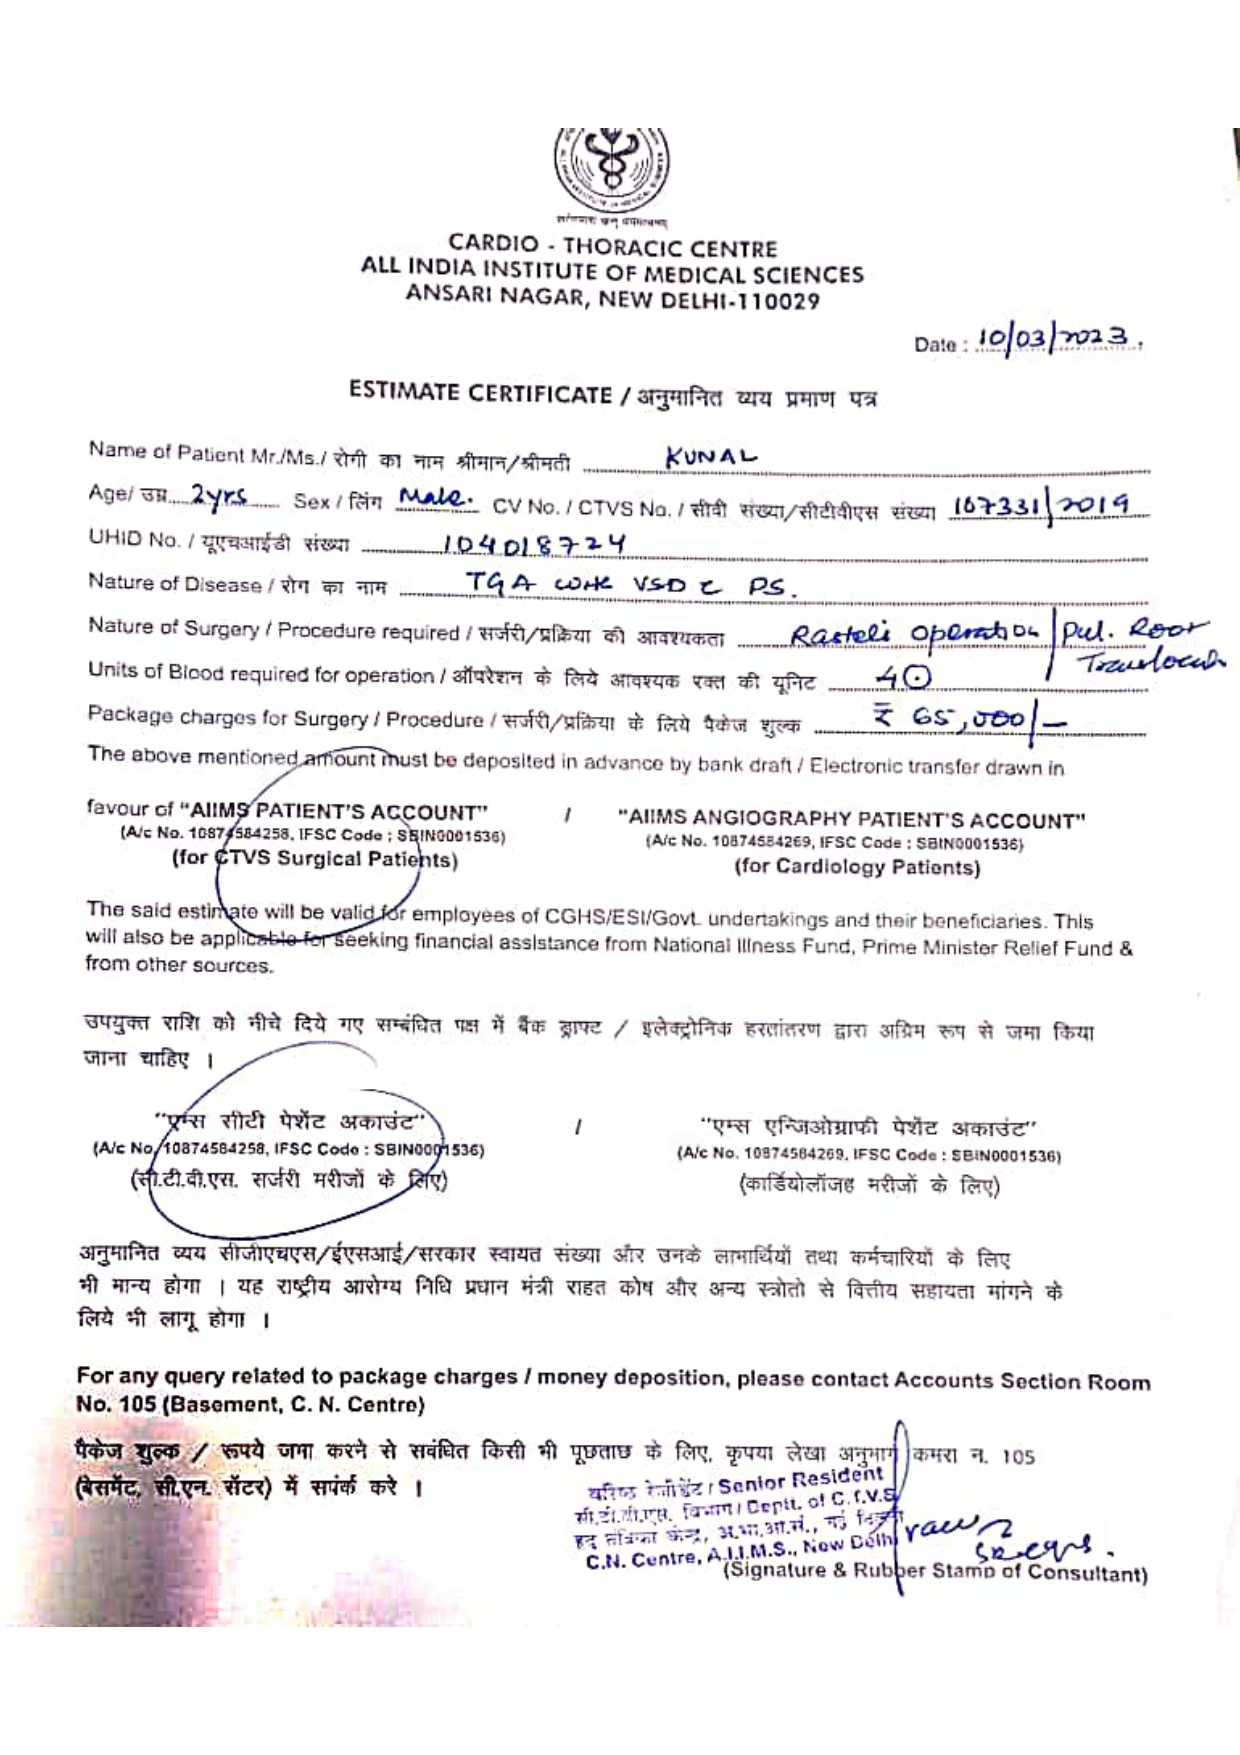 CARDIO - THORACIC CENTRE
ALL INDIA INSTITUTE OF MEDICAL SCIENCES
ANSARI NAGAR, NEW DELHI-110029
Date : 10/03/2023.
ESTIMATE CERTIFICATE / अनुमानित व्यय प्रमाण पत्र
Name of Patient Mr./Ms./ रोगी का नाम श्रीमान/श्रीमती KUNAL
Age/ उम्र 2yrs Sex / लिंग Male. CV No. / CTVS No. / सीवी संख्या/सीटीवीएस संख्या 167331/2019
UHID No. / यूएचआईडी संख्या 104018724
Nature of Disease / रोग का नाम TGA VSD c PS.
Nature of Surgery / Procedure required / सर्जरी/प्रक्रिया की आवश्यकता Rasteli operation / Pul. Root
Units of Blood required for operation / ऑपरेशन के लिये आवश्यक रक्त की यूनिट
Package charges for Surgery / Procedure / सर्जरी/प्रक्रिया के लिये पैकेज शुल्क ₹ 65,000/-
The above mentioned amount must be deposited in advance by bank draft / Electronic transfer drawn in
favour of "AIIMS PATIENT'S ACCOUNT" / "AIIMS ANGIOGRAPHY PATIENT'S ACCOUNT"
(A/c No. 10874584258, IFSC Code : SBIN0001536) (A/c No. 10874584269, IFSC Code : SBIN0001536)
(for CTVS Surgical Patients) (for Cardiology Patients)
The said estimate will be valid for employees of CGHS/ESI/Govt. undertakings and their beneficiaries. This
will also be applicable for seeking financial assistance from National Illness Fund, Prime Minister Relief Fund &
from other sources.
उपयुक्त राशि को नीचे दिये गए सम्बंधित पक्ष में बैंक ड्राफ्ट / इलेक्ट्रोनिक हस्तांतरण द्वारा अग्रिम रूप से जमा किया
जाना चाहिए ।
"एम्स सीटी पेशेंट अकाउंट" / "एम्स एन्जिओग्राफी पेशेंट अकाउंट"
(A/c No. 10874584258, IFSC Code : SBIN0001536) (A/c No. 10874584269, IFSC Code : SBIN0001536)
(सी.टी.वी.एस. सर्जरी मरीजों के लिए) (कार्डियोलॉजह मरीजों के लिए)
अनुमानित व्यय सीजीएचएस/ईएसआई/सरकार स्वायत संख्या और उनके लाभार्थियों तथा कर्मचारियों के लिए
भी मान्य होगा । यह राष्ट्रीय आरोग्य निधि प्रधान मंत्री राहत कोष और अन्य स्त्रोतो से वित्तीय सहायता मांगने के
लिये भी लागू होगा ।
For any query related to package charges / money deposition, please contact Accounts Section Room
No. 105 (Basement, C. N. Centre)
पैकेज शुल्क / रूपये जमा करने से सबंधित किसी भी पूछताछ के लिए, कृपया लेखा अनुभाग कमरा न. 105
(बेसमेंट, सी.एन. सेंटर) में सपंर्क करे ।
वरिष्ठ रेजीडेंट / Senior Resident
सी.टी.वी.एस. विभाग / Deptt. of C.T.V.S
C.N. Centre, A.I.I.M.S., New Delhi
(Signature & Rubber Stamp of Consultant)